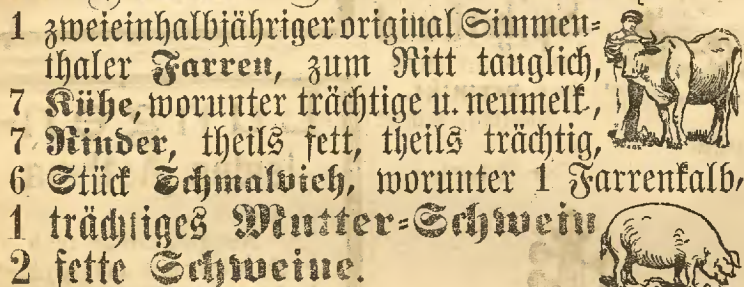 1 zweieinhalbjähriger original Simmen=
thaler Farren, zum Ritt tauglich,
7 Kühe, worunter trächtige u. neumelk,
7 Rinder, theils fett, theils trächtig,
6 Stück Schmalvieh, worunter 1 Farrenkalb,
1 trächtiges Mutter=Schwein
2 fette Schweine.